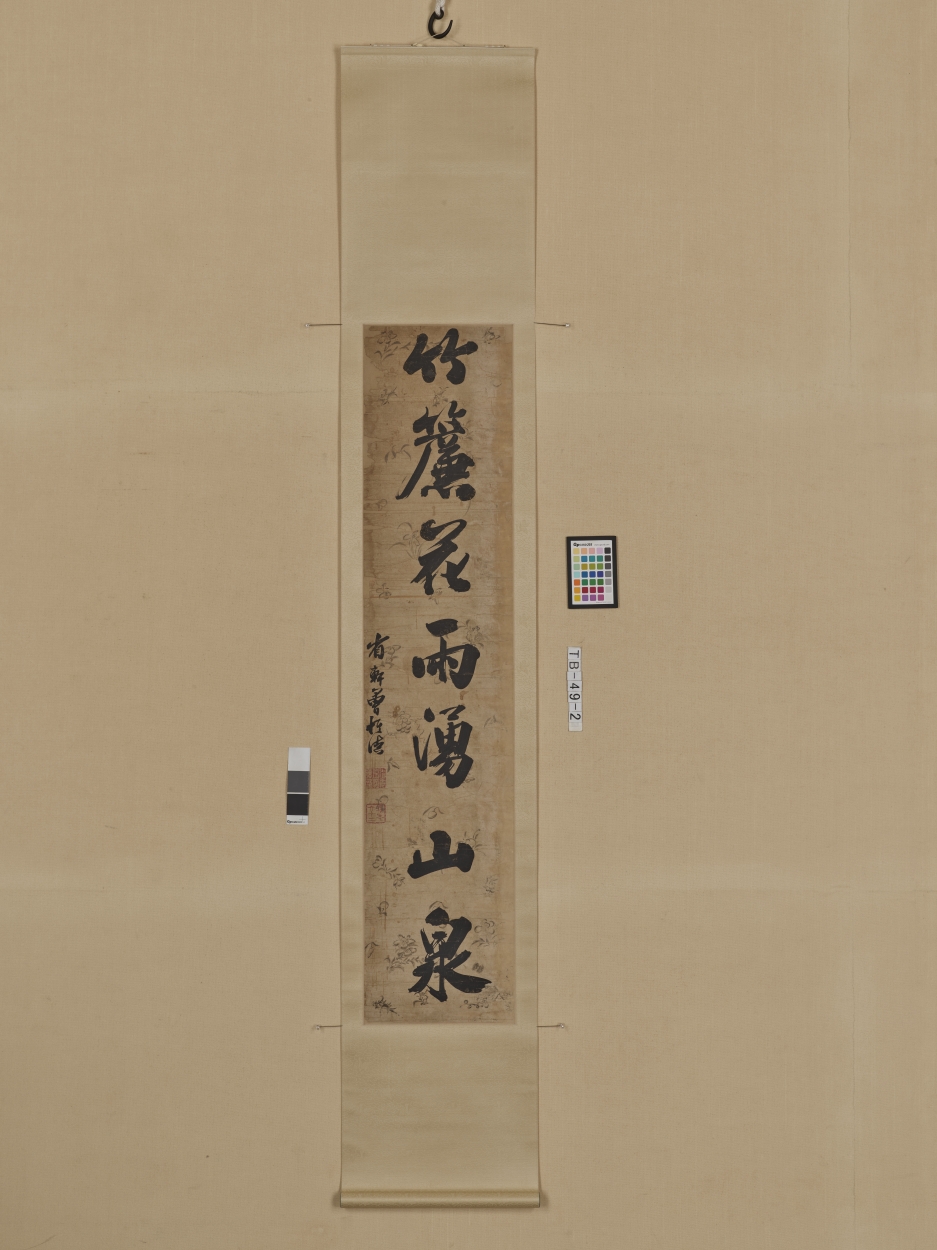 竹簾花雨湧山泉
省軒曾恒德
TB-49-2